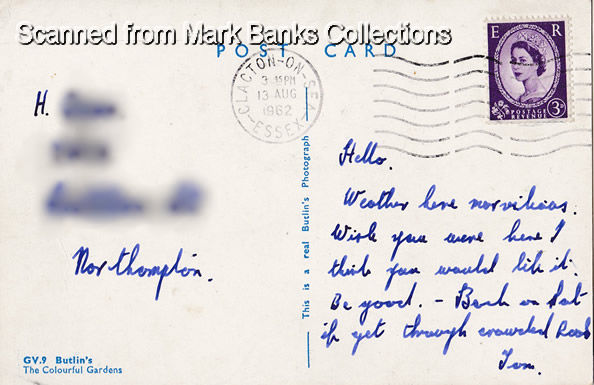 Scanned from Mark Banks Collections
POST CARD
E R
POSTAGE
REVENUE
3D
CLACTON-ON-SEA
3.15PM
13 AUG
1962
ESSEX
H.
Northampton.
This is a real Butlin's Photograph
Hello.
Weather here marvilious.
Wish you were here I
think you would like it.
Be good. - Back on Sat
if get through crowded
GV.9 Butlin's
The Colourful Gardens